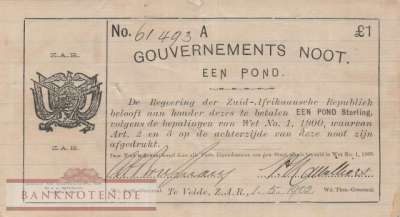 No. 61493 A £1
GOUVERNEMENTS NOOT.
EEN POND.
Z.A.R.
De Regeering der Zuid-Afrikaansche Republiek
belooft aan houder dezes te betalen EEN POND Sterling,
volgens de bepalingen van Wet No. 1, 1900, waarvan
Art. 2 en 3 op de achterzijde van deze noot zijn
afgedrukt.
Z.A.R.
Te Velde, Z.A.R., 1-5-1902 Wd. Thes.-Generaal.
BANKNOTEN.DE